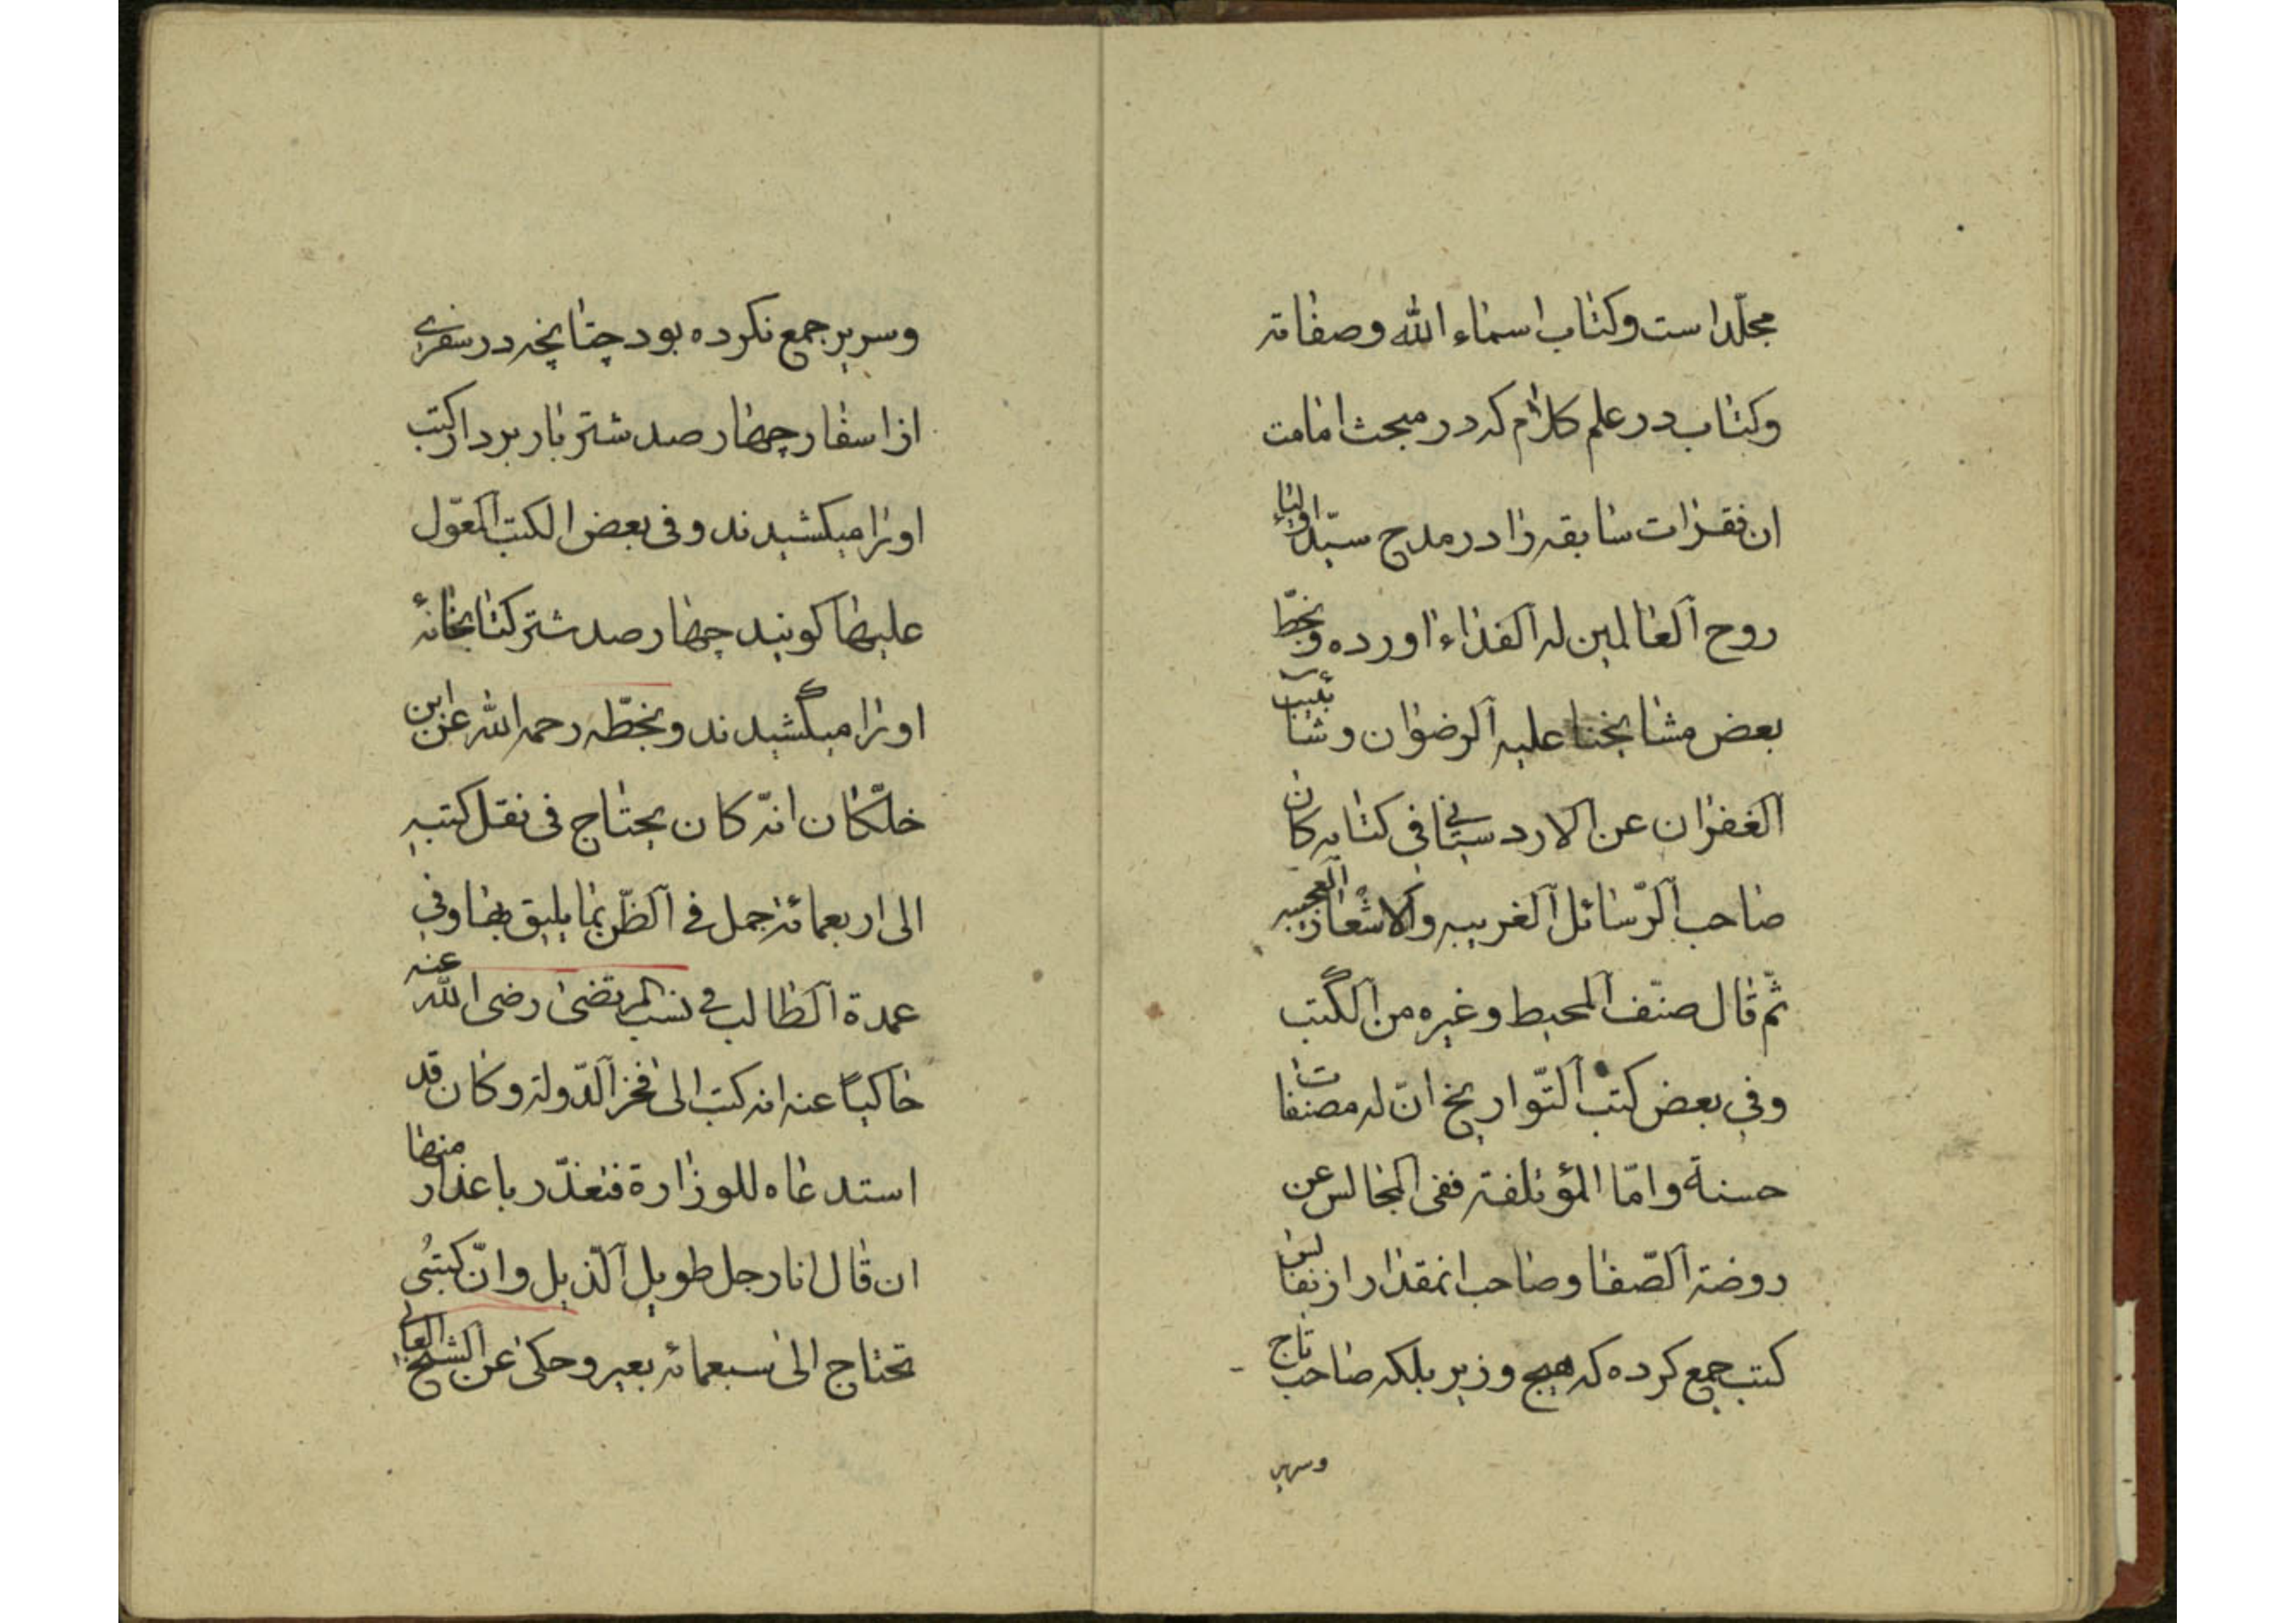 مجلّد است وکتاب اسماء الله وصفاته
وکتاب در علم کلام که در مبحث امامت
ان فقرات سابقه را در مدح سیّد اولیاء
روح العالمین له الفداء اورده وبخطّ
بعض مشایخنا علیه الرضوان وشآبیب
الغفران عن الاردستانی فی کتابه کان
صاحب الرّسائل الغریبه والاشعار العجیبه
ثمّ قال صنّف المحیط وغیره من الکتب
وفی بعض کتب التّواریخ انّ له مصنفات
حسنة وامّا المؤتلفة ففی المجالس عن
روضة الصّفا وصاحب انمقدار از نفایس
کتب جمع کرده که هیچ وزیر بلکه صاحب تاج
وسریر
وسریر جمع نکرده بود چنانچه در سفری
از اسفار چهار صد شتر بار بردار کتب
اورا میکشیدند وفی بعض الکتب المعوّل
علیها کویند چهار صد شتر کتابخانهٔ
اورا میکشیدند وبخطّه رحمه الله عن ابن
خلّکان انّه کان یحتاج فی نقل کتبه
الی اربعمائة جمل فی الظّن بما یلیق بها وفی
عمدة الطالب فی نسب المرتضی رضی الله عنه
حاکیاً عنه انه کتب الی فخر الدّولة وکان قد
استدعاه للوزارة فتعذّر باعذار منها
ان قال انا رجل طویل الذّیل وانّ کتبی
تحتاج الی سبعمائة بعیر وحکی عن الشیخ